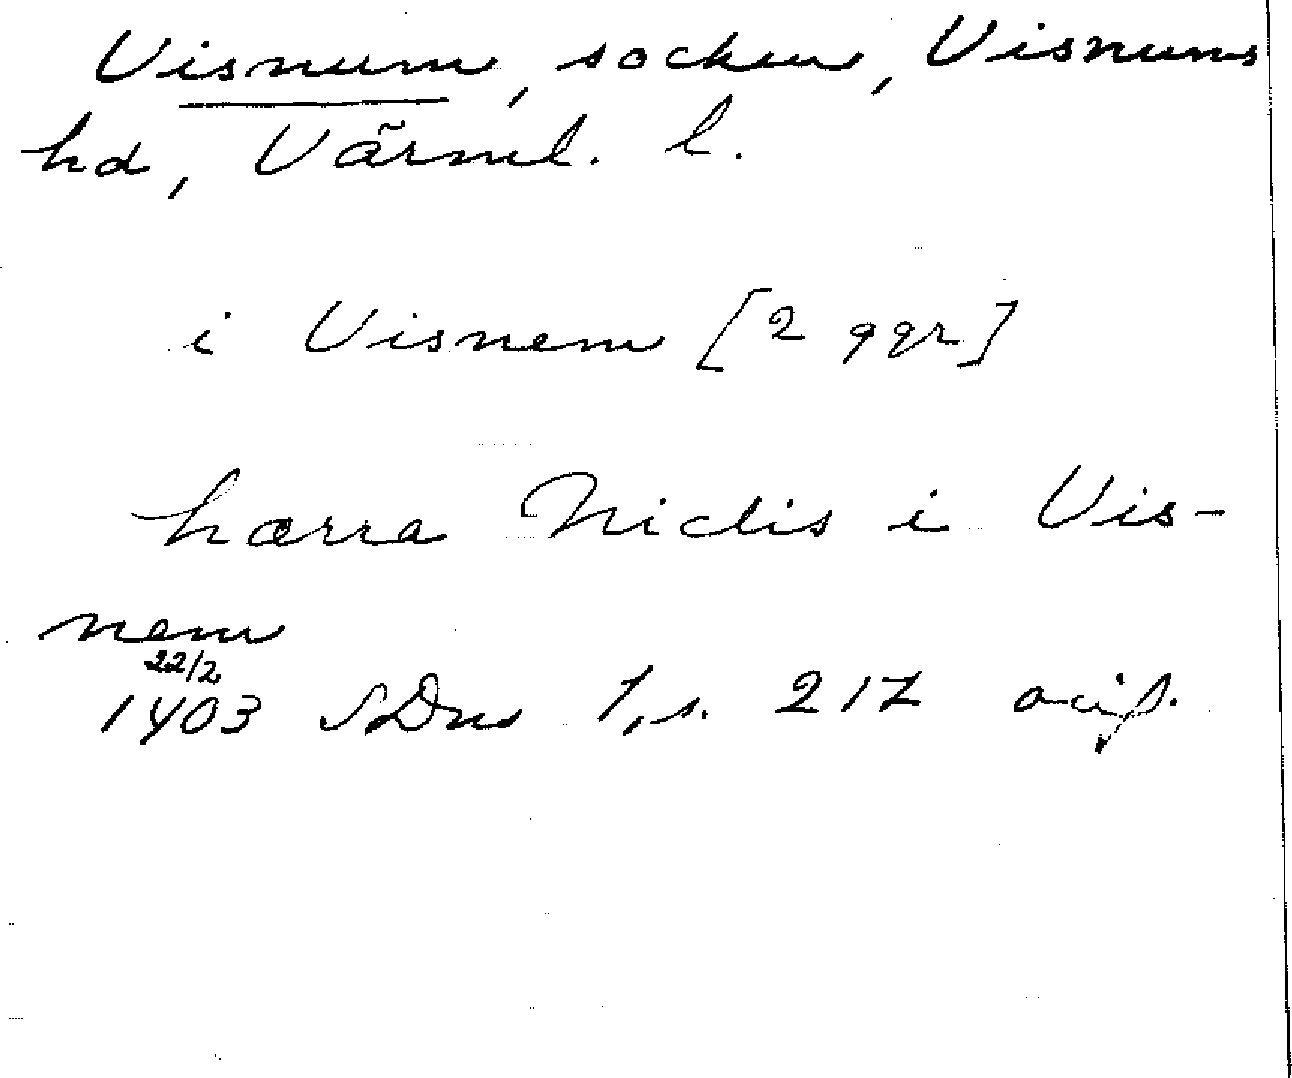 Visnum, socken, Visnums
hd, Värml. l.
i Visnem [2 ggr]
hærra Niclis i Vis-
nem
22/2
1403 SDns 1, s. 217